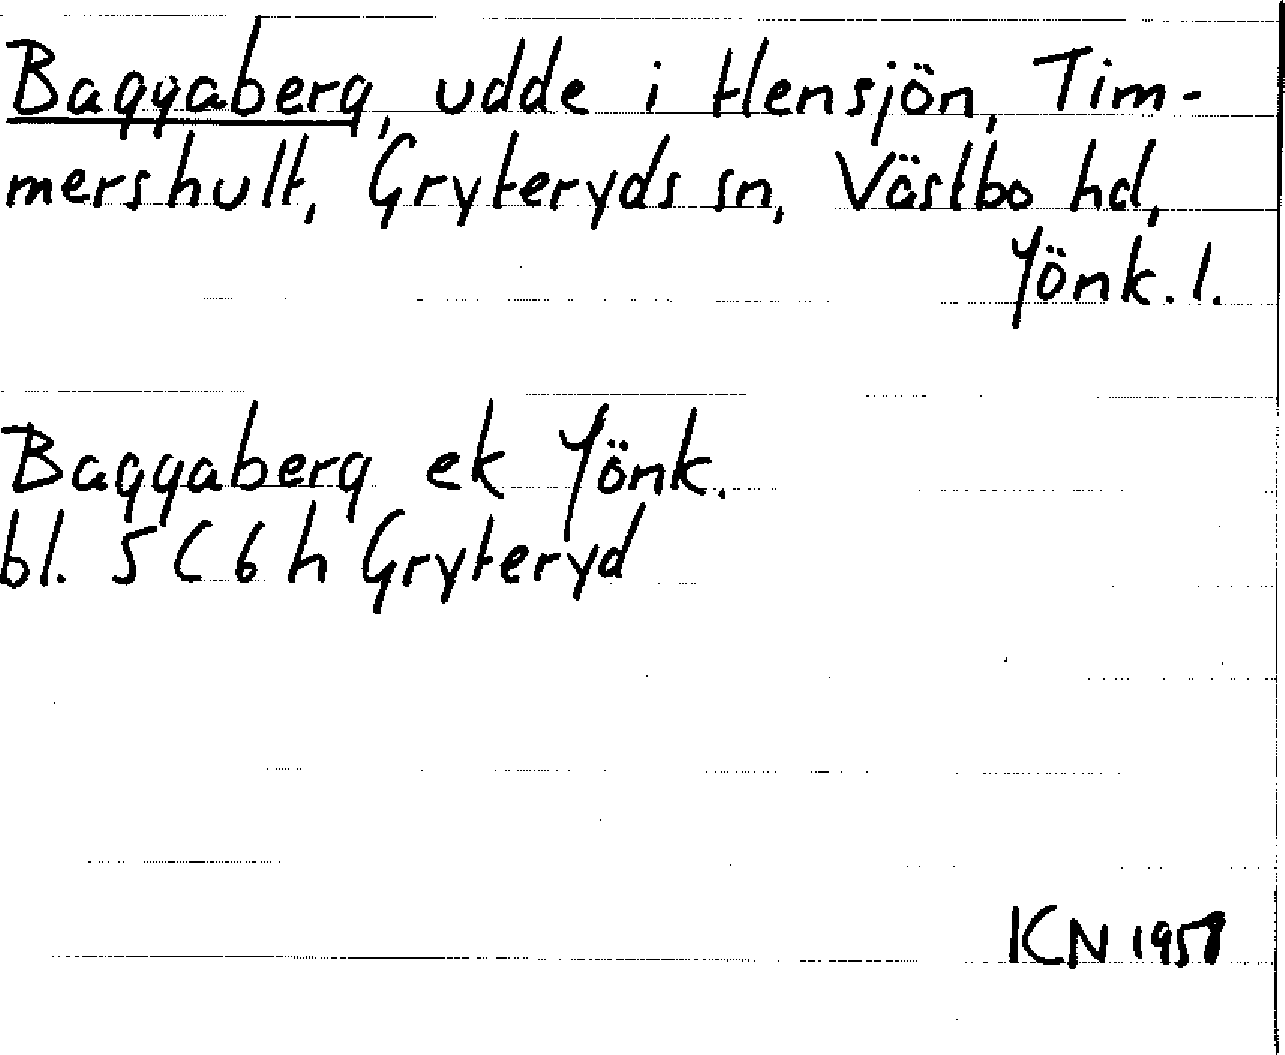 Baggaberg, udde i Hensjön, Tim-
mershult, Gryteryds sn, Västbo hd,
Jönk. l.
Baggaberg ek Jönk.
bl. 5 C 6 h Gryteryd
KN